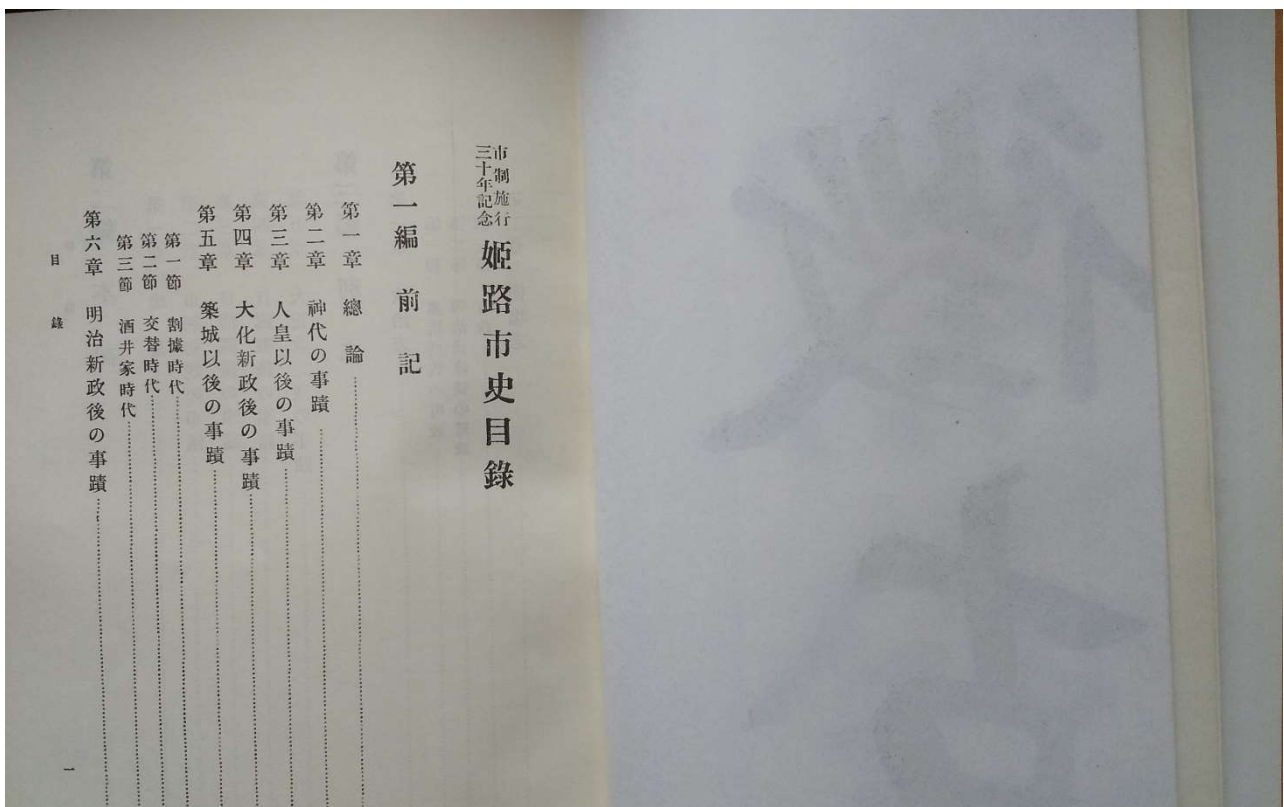 市制施行
三十年記念
姬路市史目錄
第一編 前記
第一章 總論
第二章 神代の事蹟
第三章 人皇以後の事蹟
第四章 大化新政後の事蹟
第五章 築城以後の事蹟
第一節 割據時代
第二節 交替時代
第三節 酒井家時代
第六章 明治新政後の事蹟
目錄
一